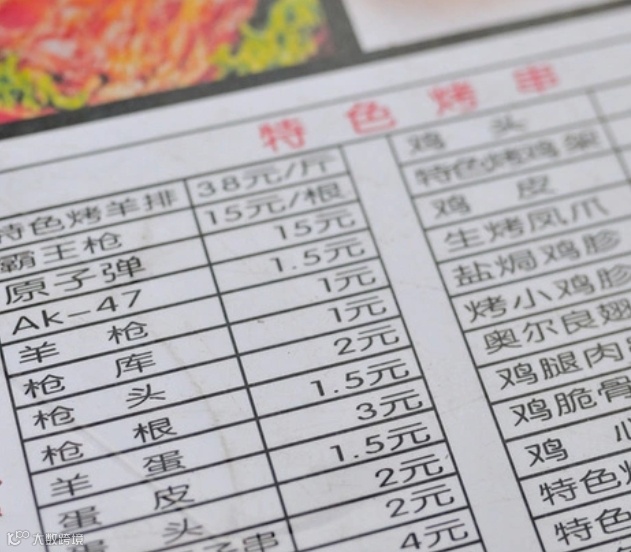 特色烤串
特色烤羊排 38元/斤
霸王枪 15元/根
原子弹 15元
AK-47 1.5元
羊枪 1元
枪库 1元
枪头 2元
枪根 1.5元
羊蛋 3元
蛋皮 1.5元
头 2元
子串 2元
4元
鸡头
特色烤鸡架
鸡皮
生烤凤爪
盐焗鸡胗
烤小鸡胗
奥尔良翅
鸡腿肉
鸡脆骨
鸡心
特色烤
特色
大数跨境